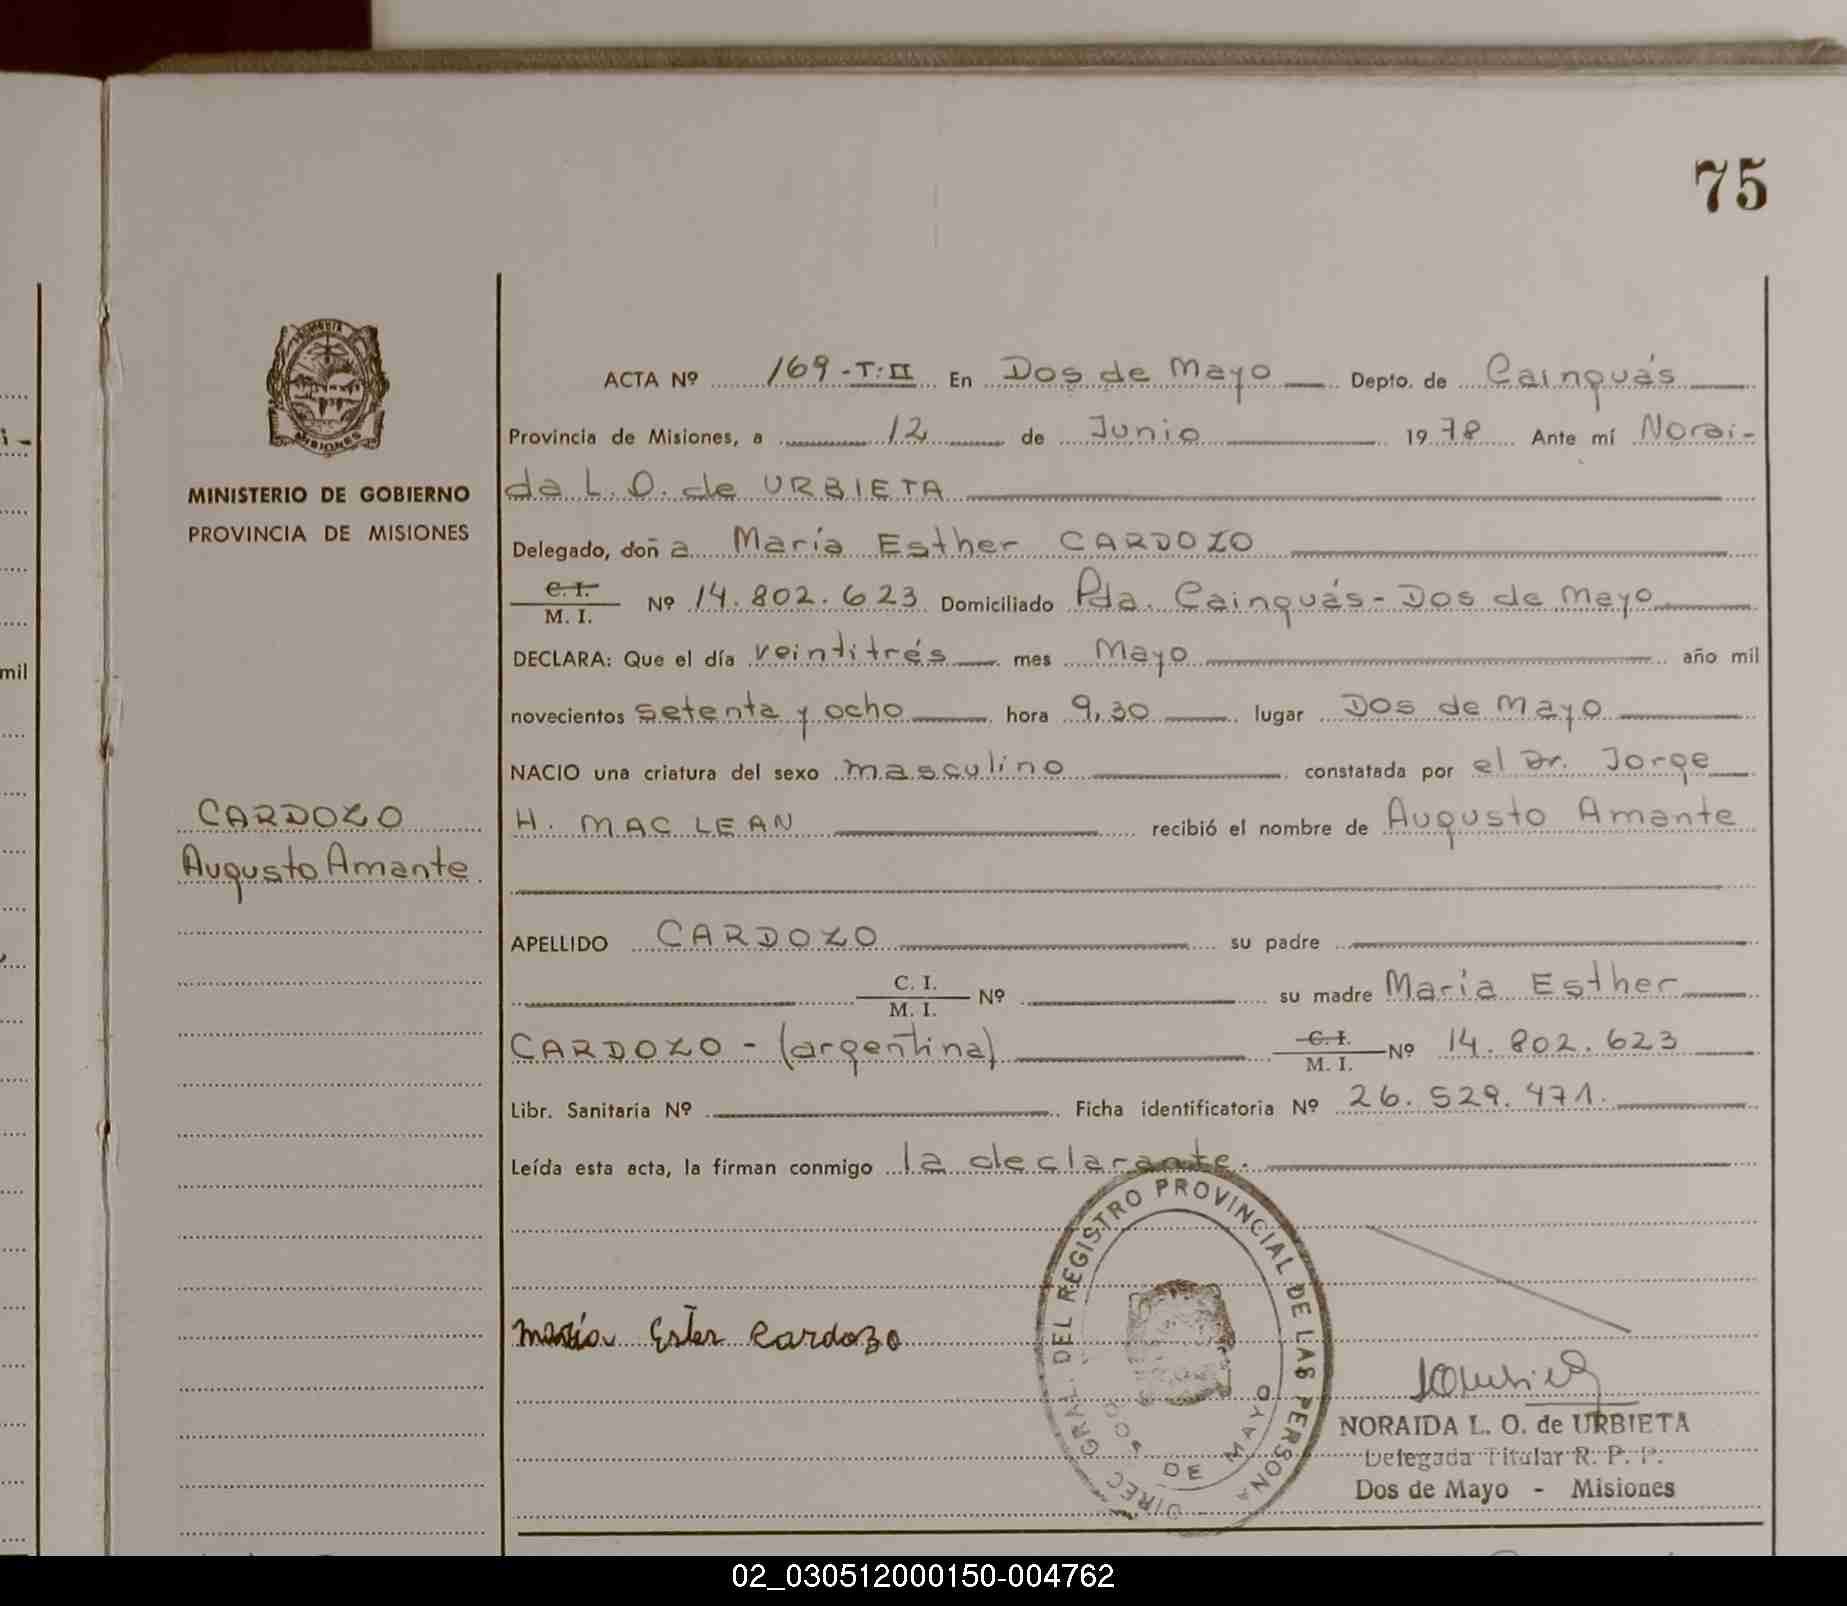 75
MISIONES
MINISTERIO DE GOBIERNO
PROVINCIA DE MISIONES
CARDOZO
Augusto Amante
ACTA Nº 169-T:II En Dos de Mayo Depto. de Cainguás
Provincia de Misiones, a 12 de Junio 1978 Ante mí Norai-
da L. O. de URBIETA
Delegado, doña María Esther CARDOZO
C. I. / M. I. Nº 14.802.623 Domiciliado Pda. Cainguás - Dos de Mayo
DECLARA: Que el día veintitrés mes Mayo año mil
novecientos setenta y ocho hora 9,30 lugar Dos de Mayo
NACIO una criatura del sexo masculino constatada por el Dr. Jorge
H. MAC LEAN recibió el nombre de Augusto Amante
APELLIDO CARDOZO su padre
C. I. / M. I. Nº su madre María Esther
CARDOZO - (argentina) C. I. / M. I. Nº 14.802.623
Libr. Sanitaria Nº Ficha identificatoria Nº 26.529.471.
Leída esta acta, la firman conmigo la declarante.
DIREC GRAL. DEL REGISTRO PROVINCIAL DE LAS PERSONA
DOS DE MAYO
María Ester Cardozo
NORAIDA L. O. de URBIETA
Delegada Titular R. P. P.
Dos de Mayo - Misiones
mil
02_030512000150-004762